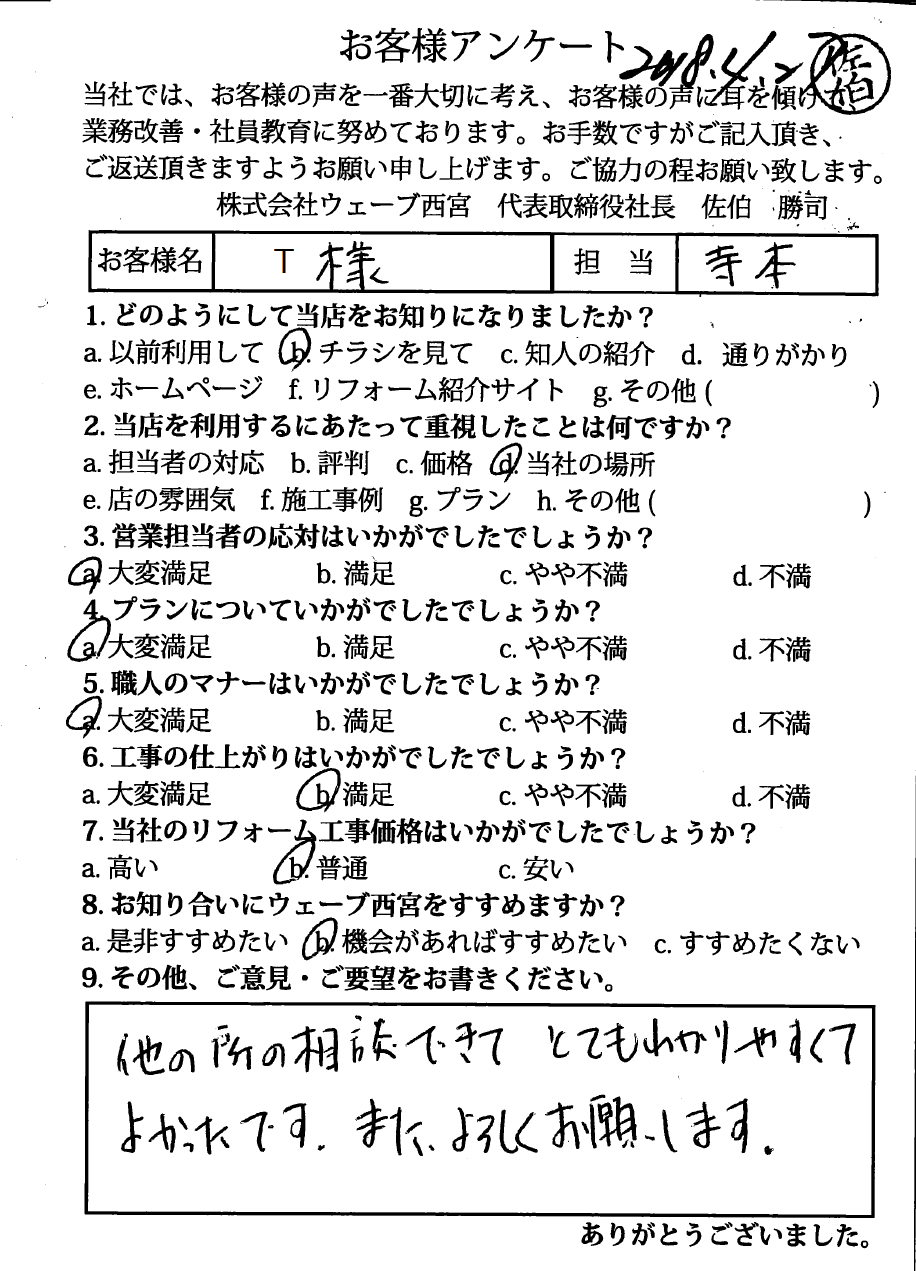 お客様アンケート 2018.4.27 佐伯
当社では、お客様の声を一番大切に考え、お客様の声に耳を傾け
業務改善・社員教育に努めております。お手数ですがご記入頂き、
ご返送頂きますようお願い申し上げます。ご協力の程お願い致します。
株式会社ウェーブ西宮 代表取締役社長 佐伯 勝司
お客様名 T 様 担 当 寺本
1. どのようにして当店をお知りになりましたか？
a. 以前利用して b. チラシを見て c. 知人の紹介 d. 通りがかり
e. ホームページ f. リフォーム紹介サイト g. その他 ( )
2. 当店を利用するにあたって重視したことは何ですか？
a. 担当者の対応 b. 評判 c. 価格 d. 当社の場所
e. 店の雰囲気 f. 施工事例 g. プラン h. その他 ( )
3. 営業担当者の応対はいかがでしたでしょうか？
a. 大変満足 b. 満足 c. やや不満 d. 不満
4. プランについていかがでしたでしょうか？
a. 大変満足 b. 満足 c. やや不満 d. 不満
5. 職人のマナーはいかがでしたでしょうか？
a. 大変満足 b. 満足 c. やや不満 d. 不満
6. 工事の仕上がりはいかがでしたでしょうか？
a. 大変満足 b. 満足 c. やや不満 d. 不満
7. 当社のリフォーム工事価格はいかがでしたでしょうか？
a. 高い b. 普通 c. 安い
8. お知り合いにウェーブ西宮をすすめますか？
a. 是非すすめたい b. 機会があればすすめたい c. すすめたくない
9. その他、ご意見・ご要望をお書きください。
他の所の相談できて とてもわかりやすくて
よかったです。また、よろしくお願いします。
ありがとうございました。